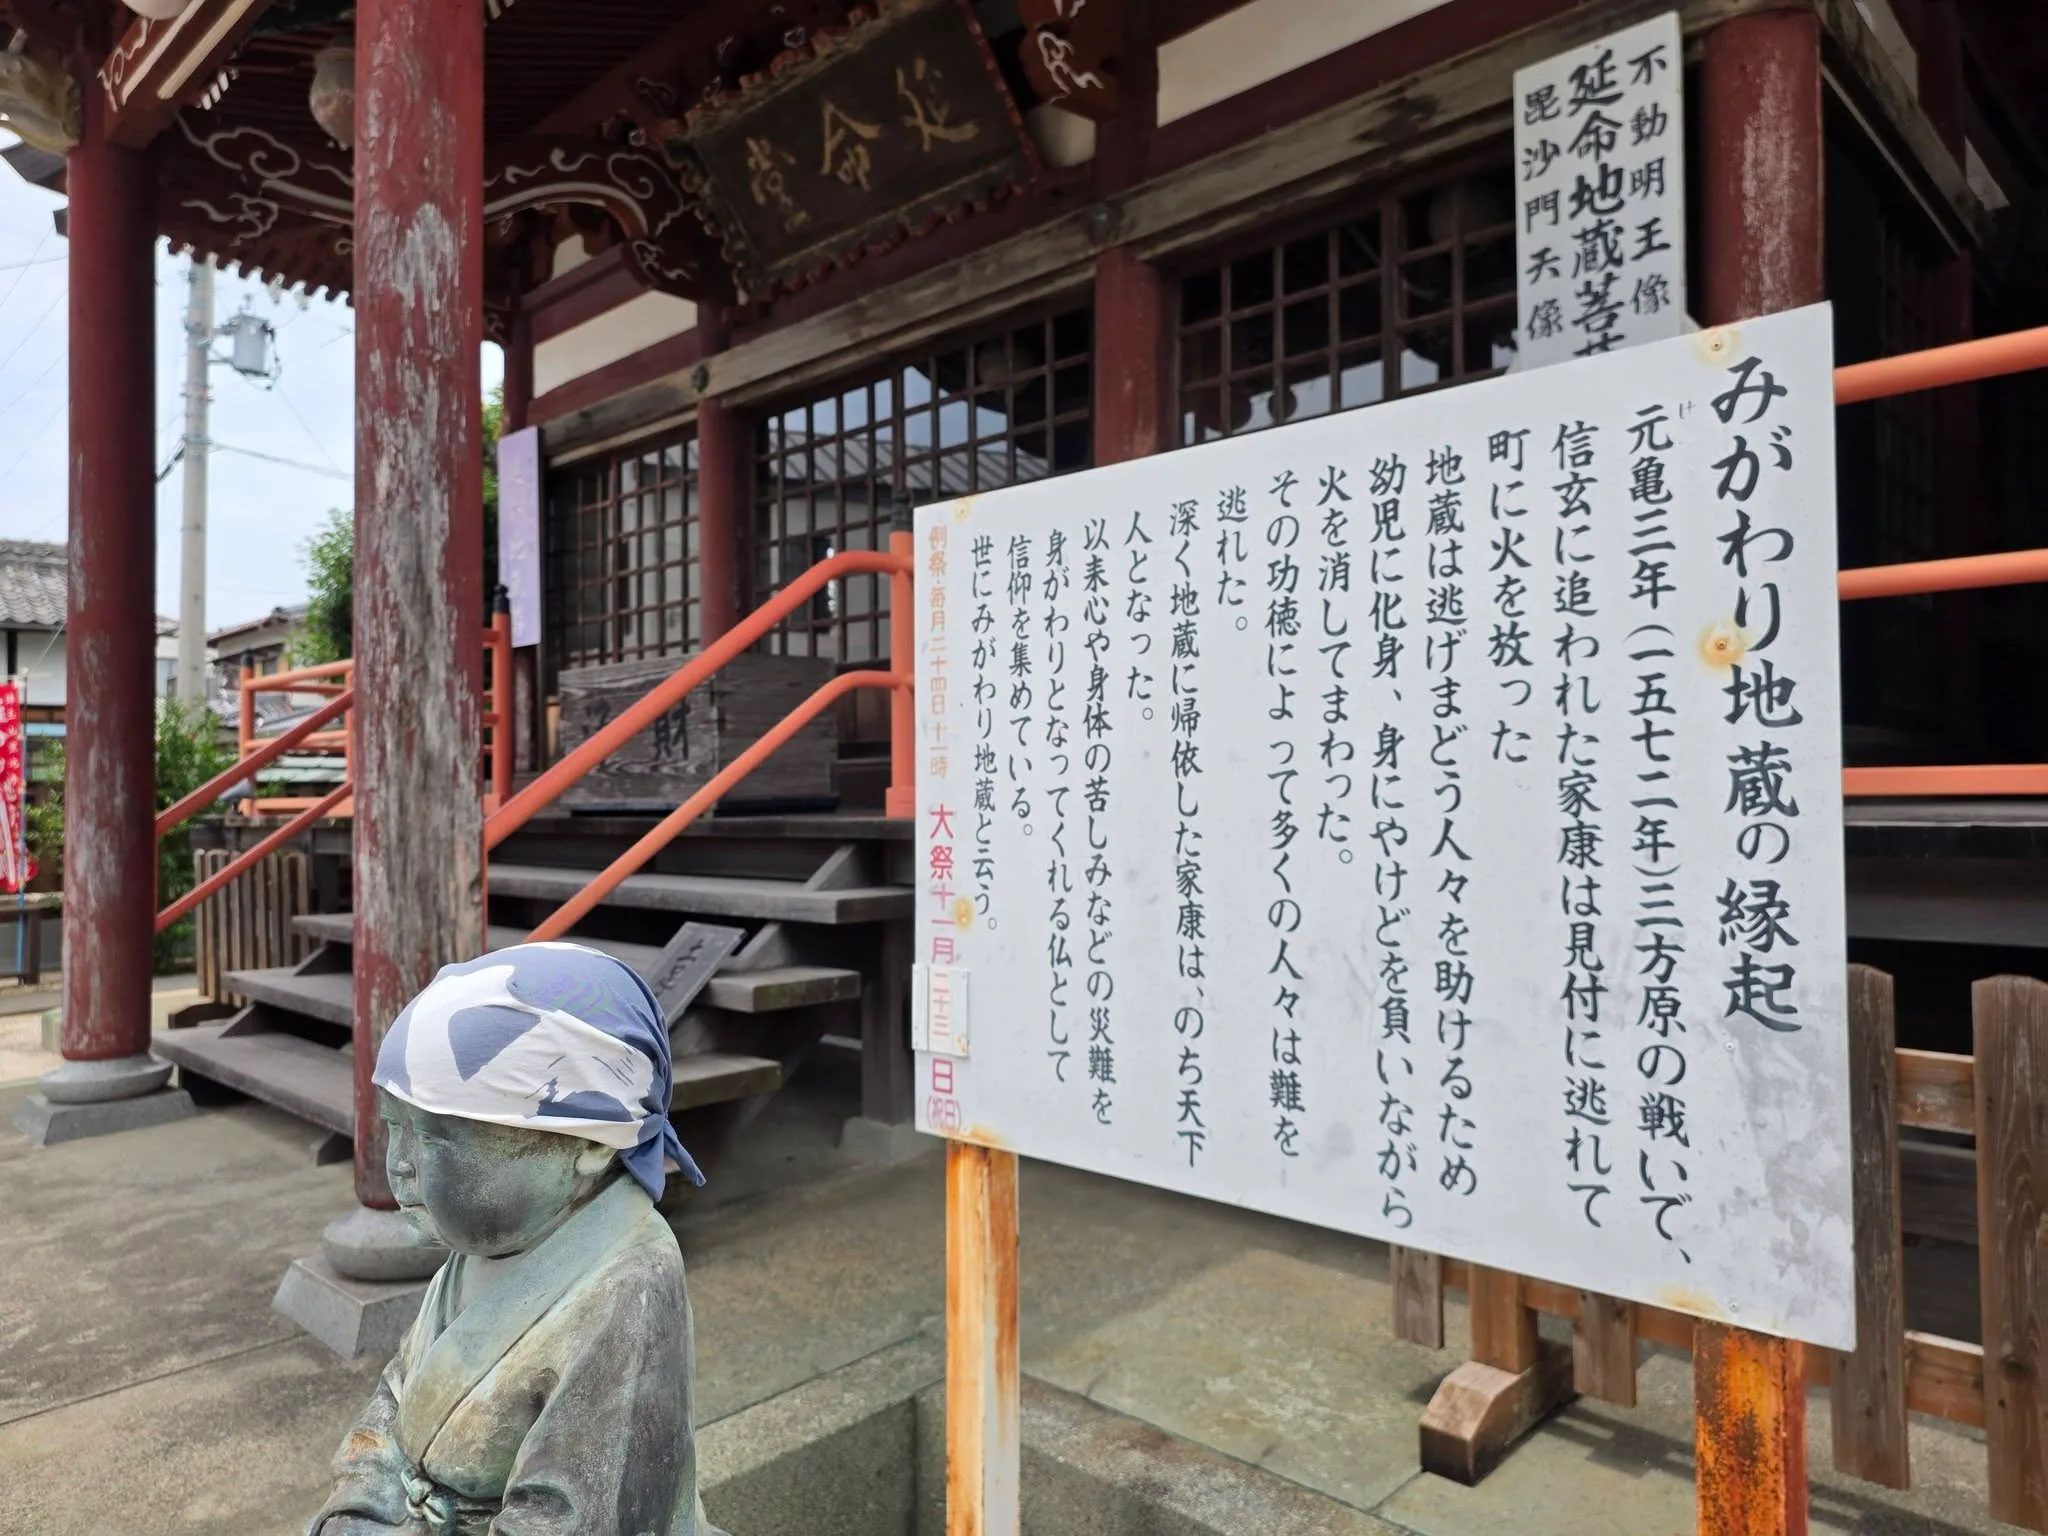 みがわり地蔵の縁起
元亀三年(一五七二年)三方原の戦いで、
け
信玄に追われた家康は見付に逃れて
町に火を放った
地蔵は逃げまどう人々を助けるため
幼児に化身、身にやけどを負いながら
火を消してまわった。
その功徳によって多くの人々は難を
逃れた。
深く地蔵に帰依した家康は、のち天下
人となった。
以来心や身体の苦しみなどの災難を
身がわりとなってくれる仏として
信仰を集めている。
世にみがわり地蔵と云う。
例祭・毎月二十四日十一時 大祭十一月二十三日(祝日)
不動明王像
延命地蔵菩薩
毘沙門天像
延命堂
財